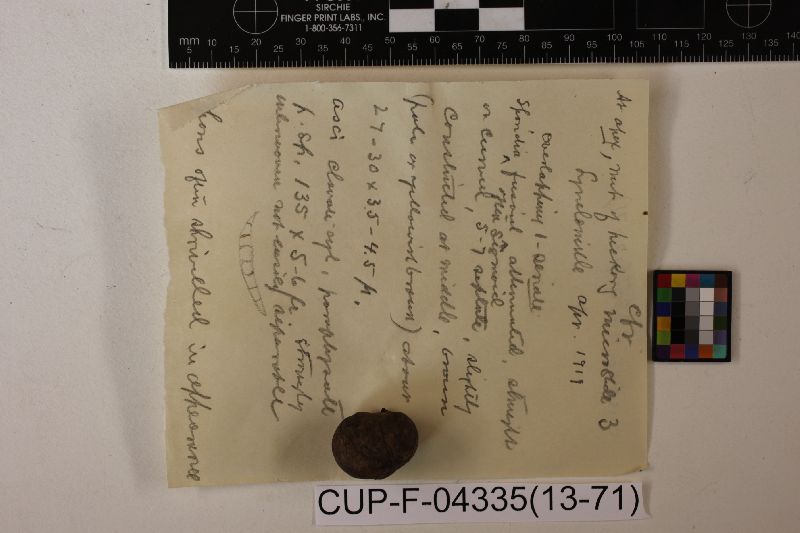 SIRCHIE
FINGER PRINT LABS., INC.
1-800-356-7311
mm 5 10 15 20 25 30 35 40 45 50 55 60 65 70 75 80 85 90 95 100 105 110 115 120 125 130 135 140
cfr
At apex, nut of hickory microslide 3
apr. 1919
overlapping 1-seriate
Sporidia fusoid attenuated, straight
often sigmoid
or curved, 5-7 septate, slightly
constricted at middle, brown
(pale or yellowish brown) about
27-30 x 3.5-4.5 µ.
asci clavate-cyl., paraphysate
p. sp. 135 x 5-6 µ. strongly
interwoven not easily separable
Cons often shrivelled in appearance
CUP-F-04335(13-71)